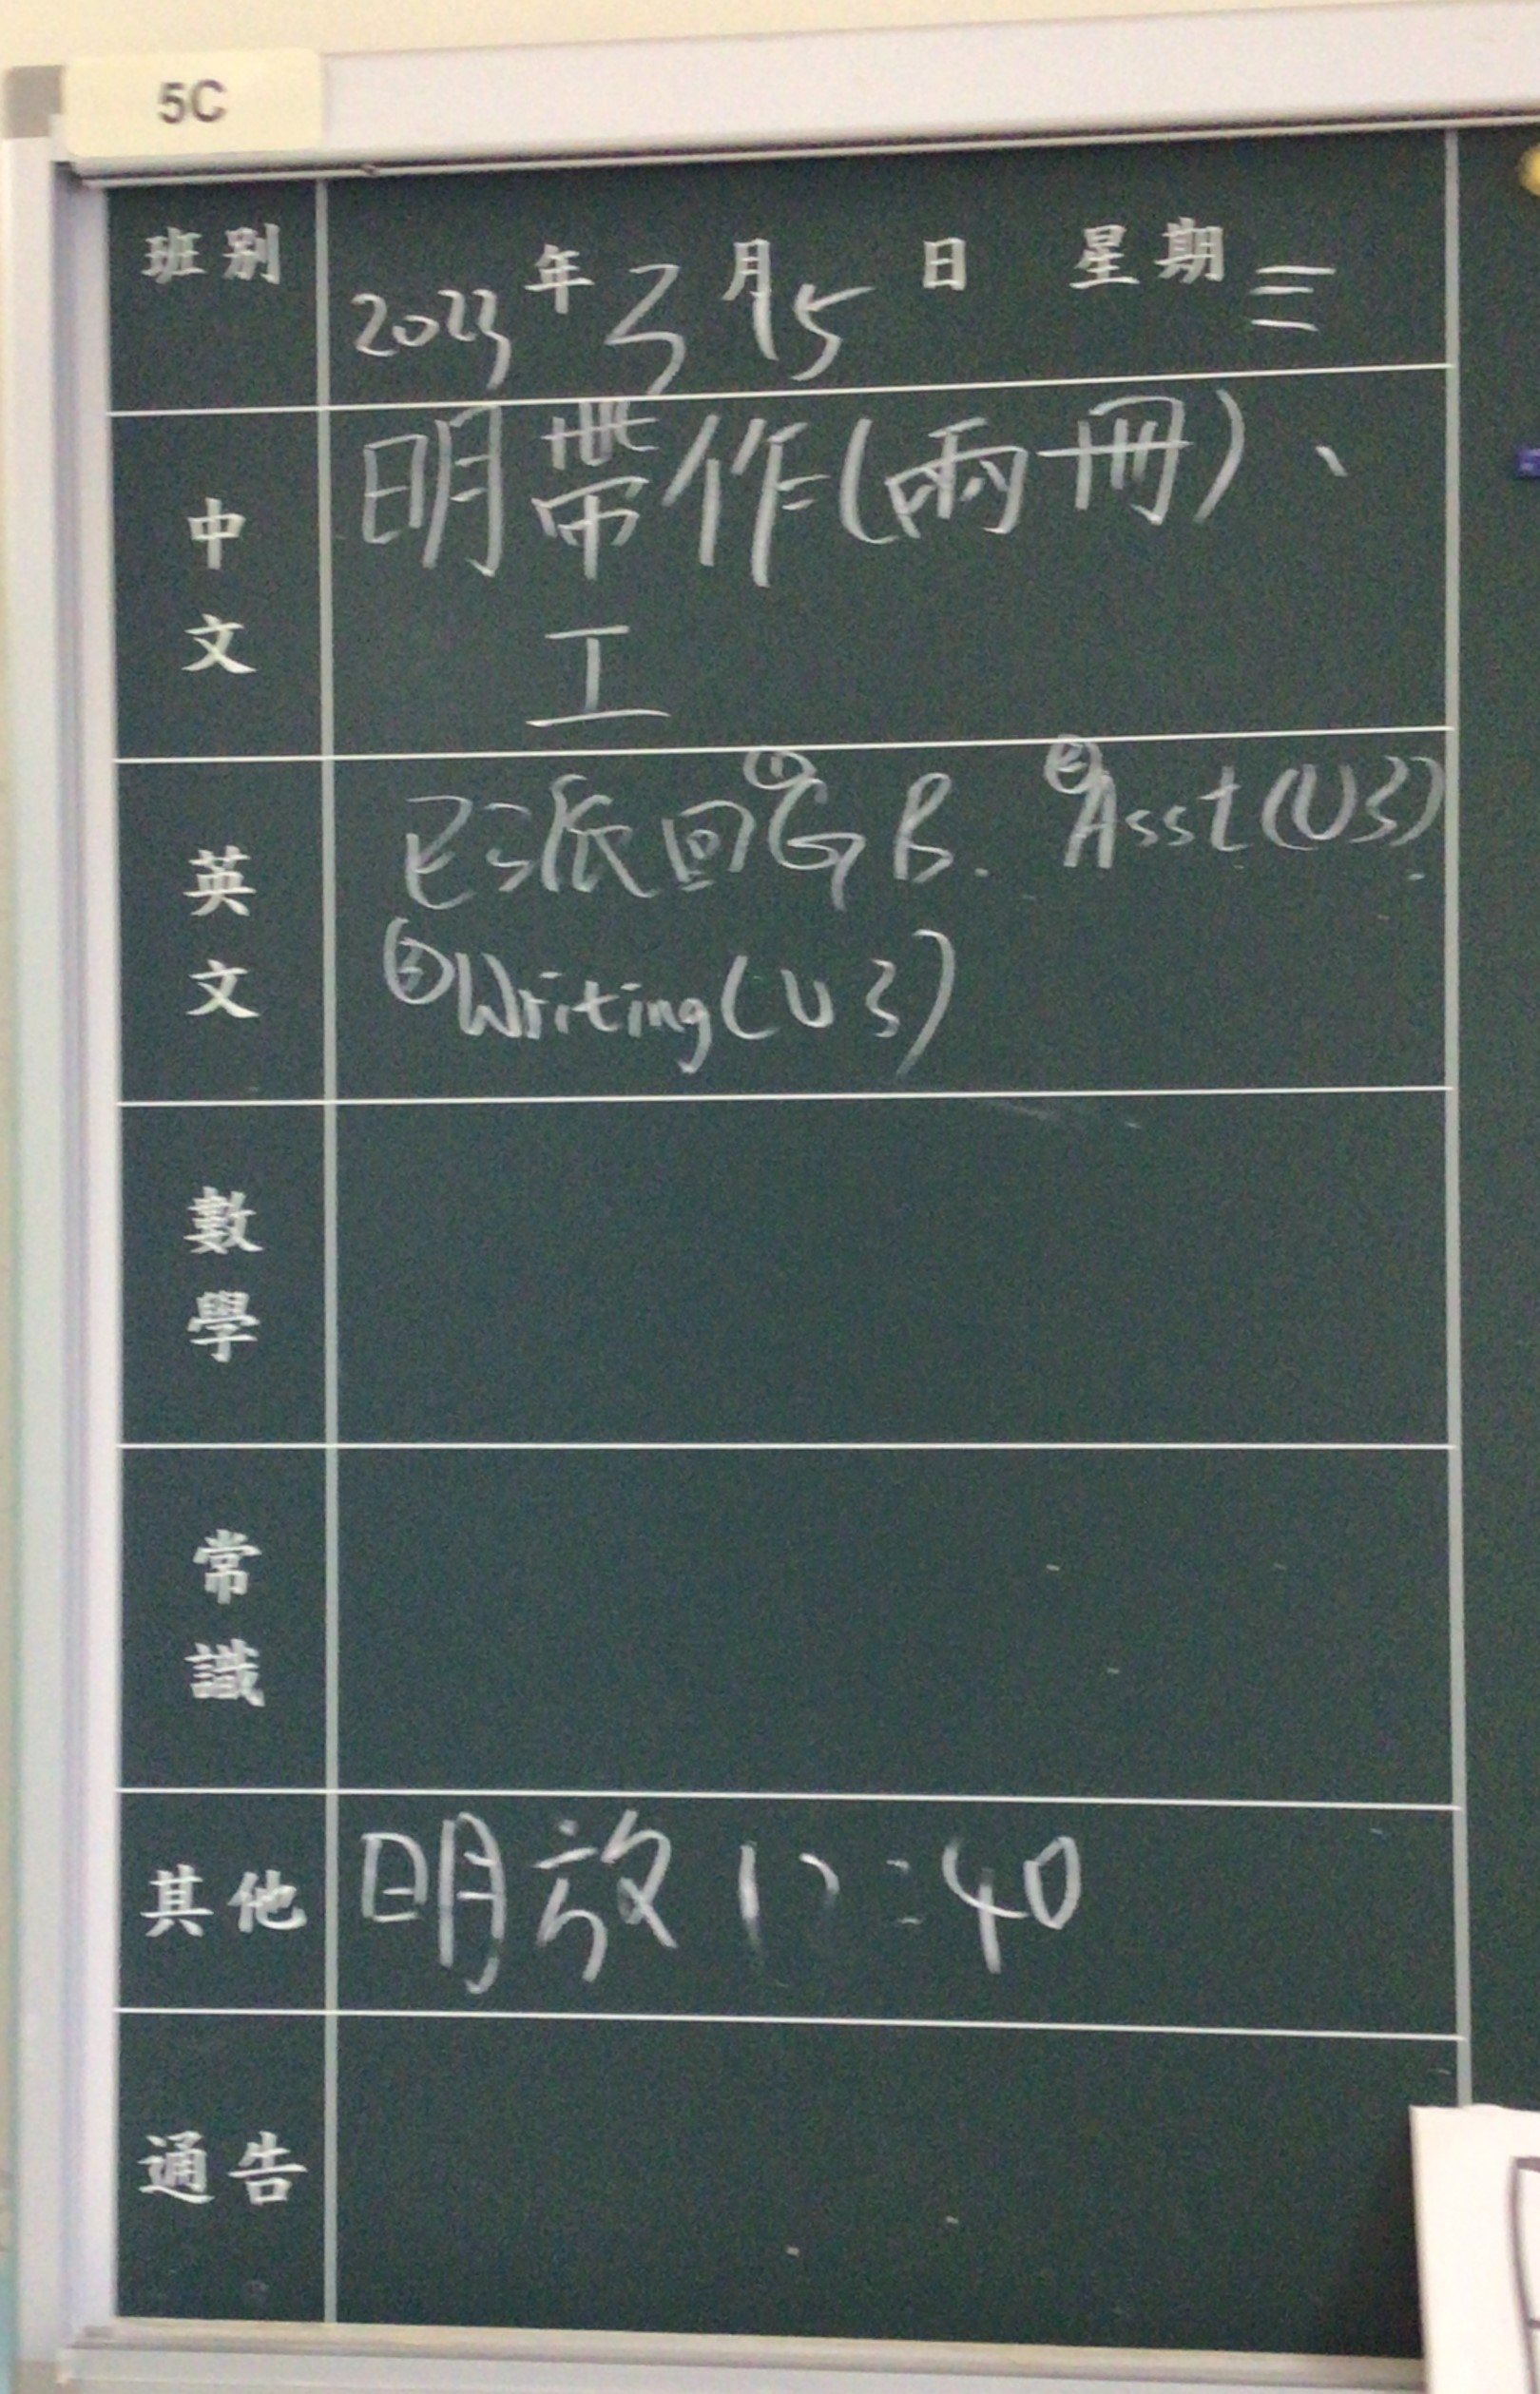 5C
班別 2023年3月15日 星期三
中文 明帶作(兩冊)、
工
英文 已派回①GB. ②Asst(U3)
③Writing(U3)
數學
常識
其他 明放12:40
通告